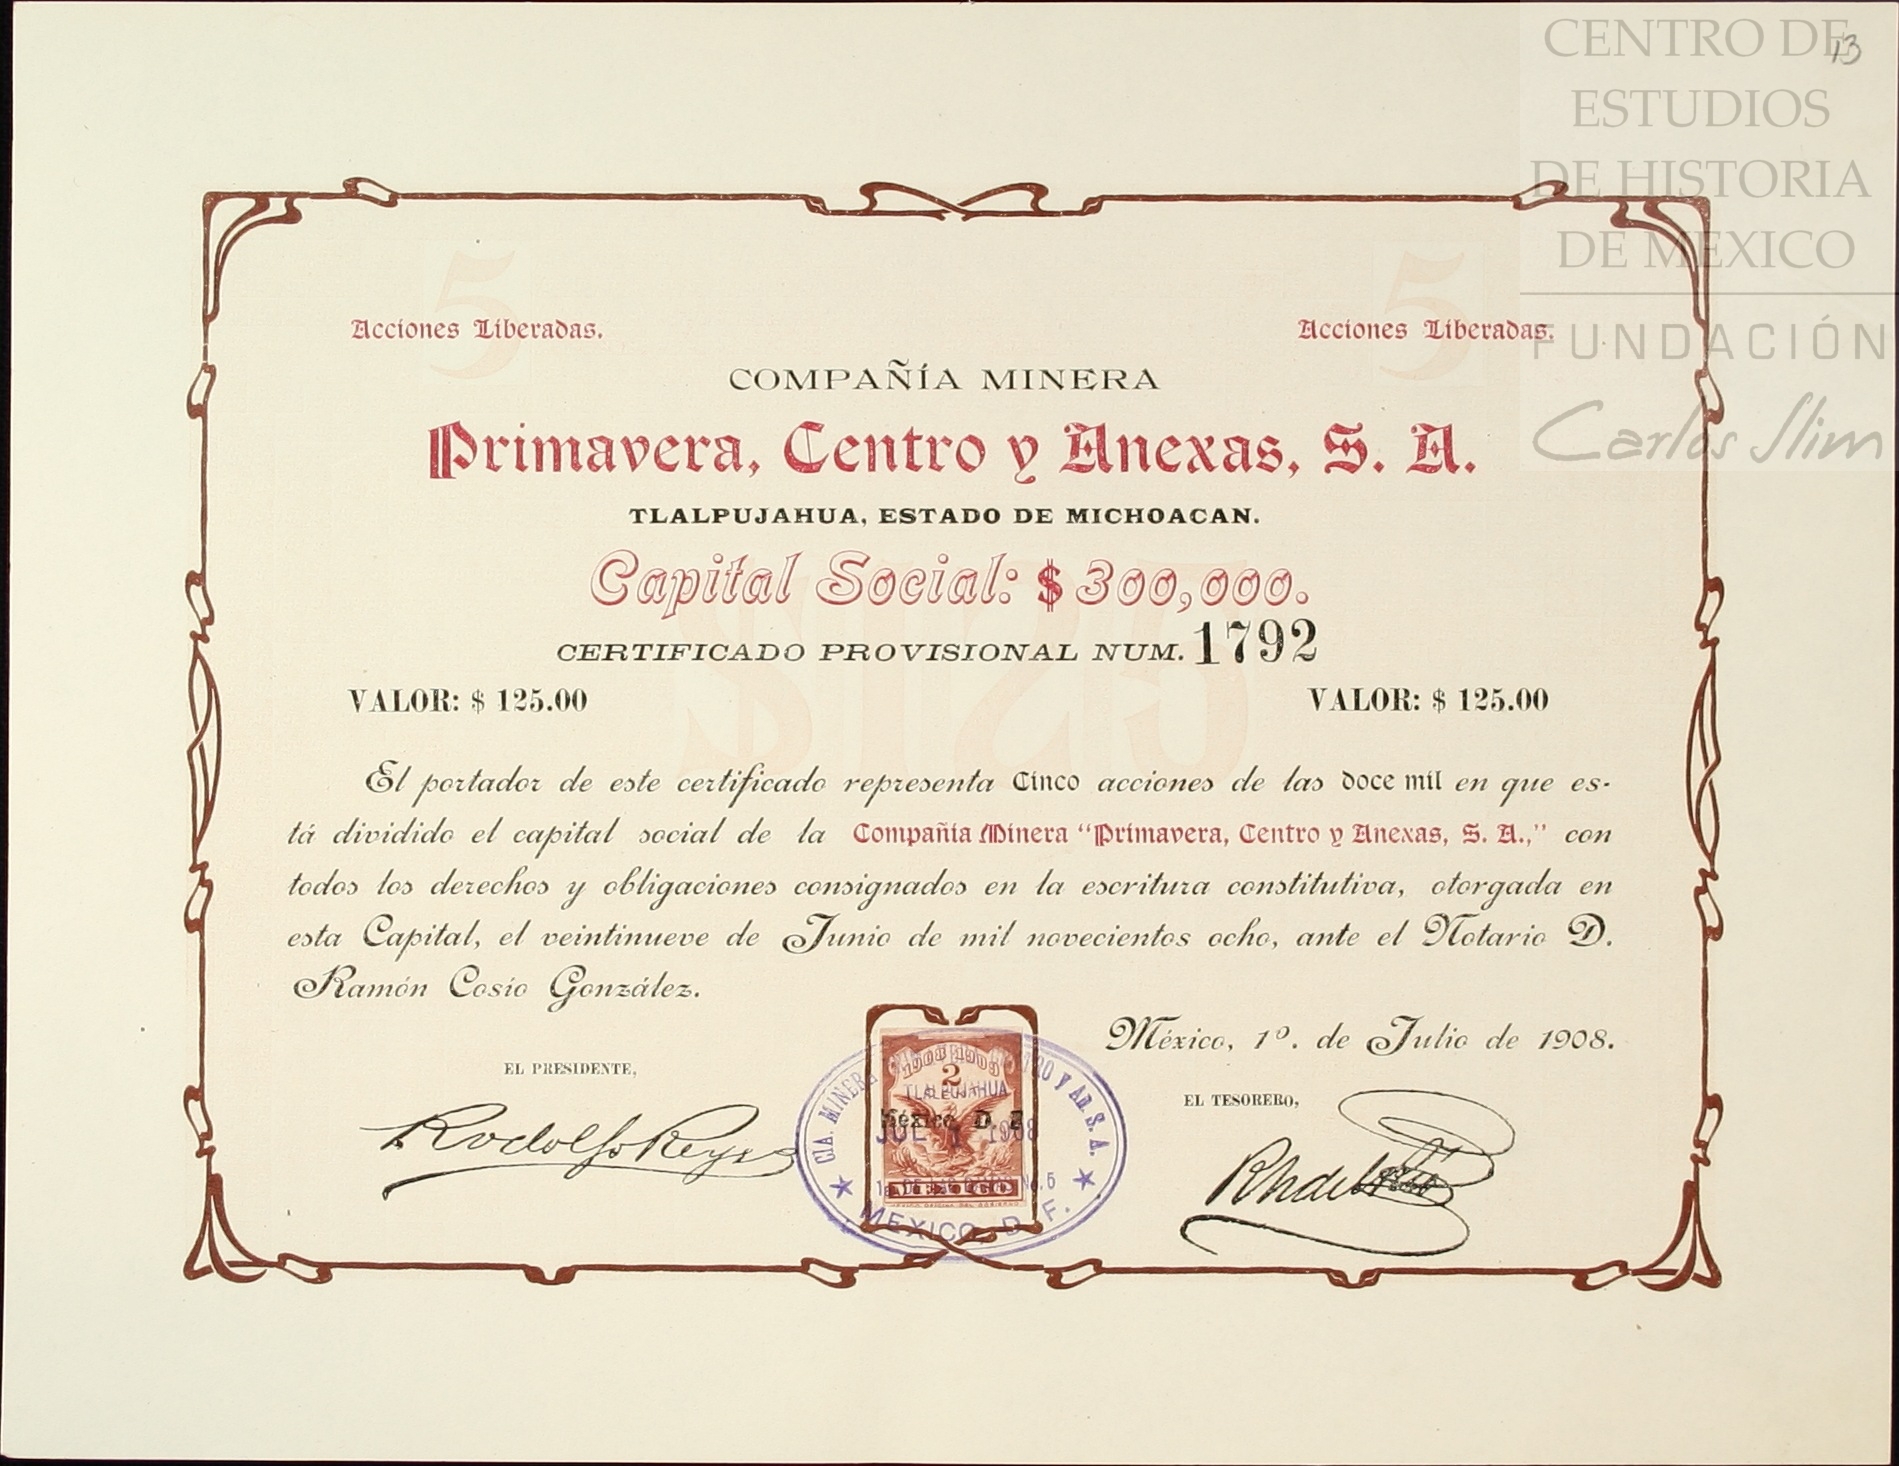 CENTRO DE
13
ESTUDIOS
DE HISTORIA
DE MEXICO
FUNDACIÓN
Carlos Slim
5
5
Acciones Liberadas.
Acciones Liberadas.
COMPAÑÍA MINERA
Primavera, Centro y Anexas, S. A.
TLALPUJAHUA, ESTADO DE MICHOACAN.
Capital Social: $ 300,000.
CERTIFICADO PROVISIONAL NUM. 1792
$125
VALOR: $ 125.00
VALOR: $ 125.00
El portador de este certificado representa Cinco acciones de las doce mil en que es-
tá dividido el capital social de la Compañía Minera "Primavera, Centro y Anexas, S. A.," con
todos los derechos y obligaciones consignados en la escritura constitutiva, otorgada en
esta Capital, el veintinueve de Junio de mil novecientos ocho, ante el Notario D.
Ramón Cosío González.
México, 1º. de Julio de 1908.
EL PRESIDENTE,
Rodolfo Reyes
EL TESORERO,
CIA. MINERA
TRO Y AN. S. A.
2
TLALPUJAHUA
México, D. F
JUL 1 1908
MEXICO, D. F.